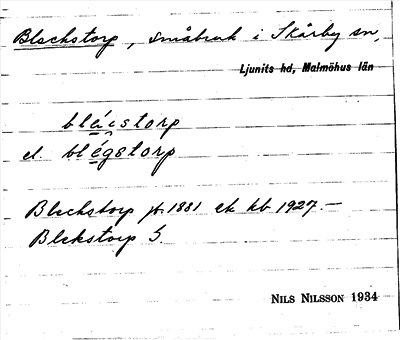 Bleckstorp, småbruk i Skårby sn,
Ljunits hd, Malmöhus län
blácstorp
el. blégstorp
Bleckstorp jb. 1881 ek kb 1927.—
Blekstorp G.
NILS NILSSON 1934